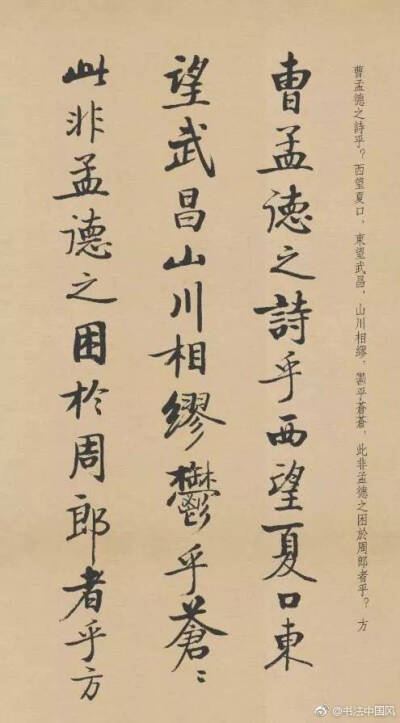 曹孟德之詩乎？西望夏口，東望武昌，山川相繆，鬱乎蒼蒼，此非孟德之困於周郎者乎？方
曹孟德之詩乎西望夏口東
望武昌山川相繆鬱乎蒼〻
此非孟德之困於周郎者乎方
@书法中国风